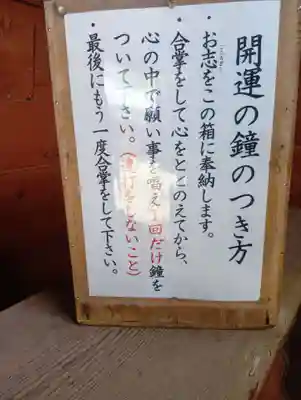 開運の鐘のつき方
・お志をこの箱に奉納します。
こころざし
・合掌をして心をととのえてから、
心の中で願い事を唱え1回だけ鐘を
ついて下さい。(連打をしないこと)
・最後にもう一度合掌をして下さい。